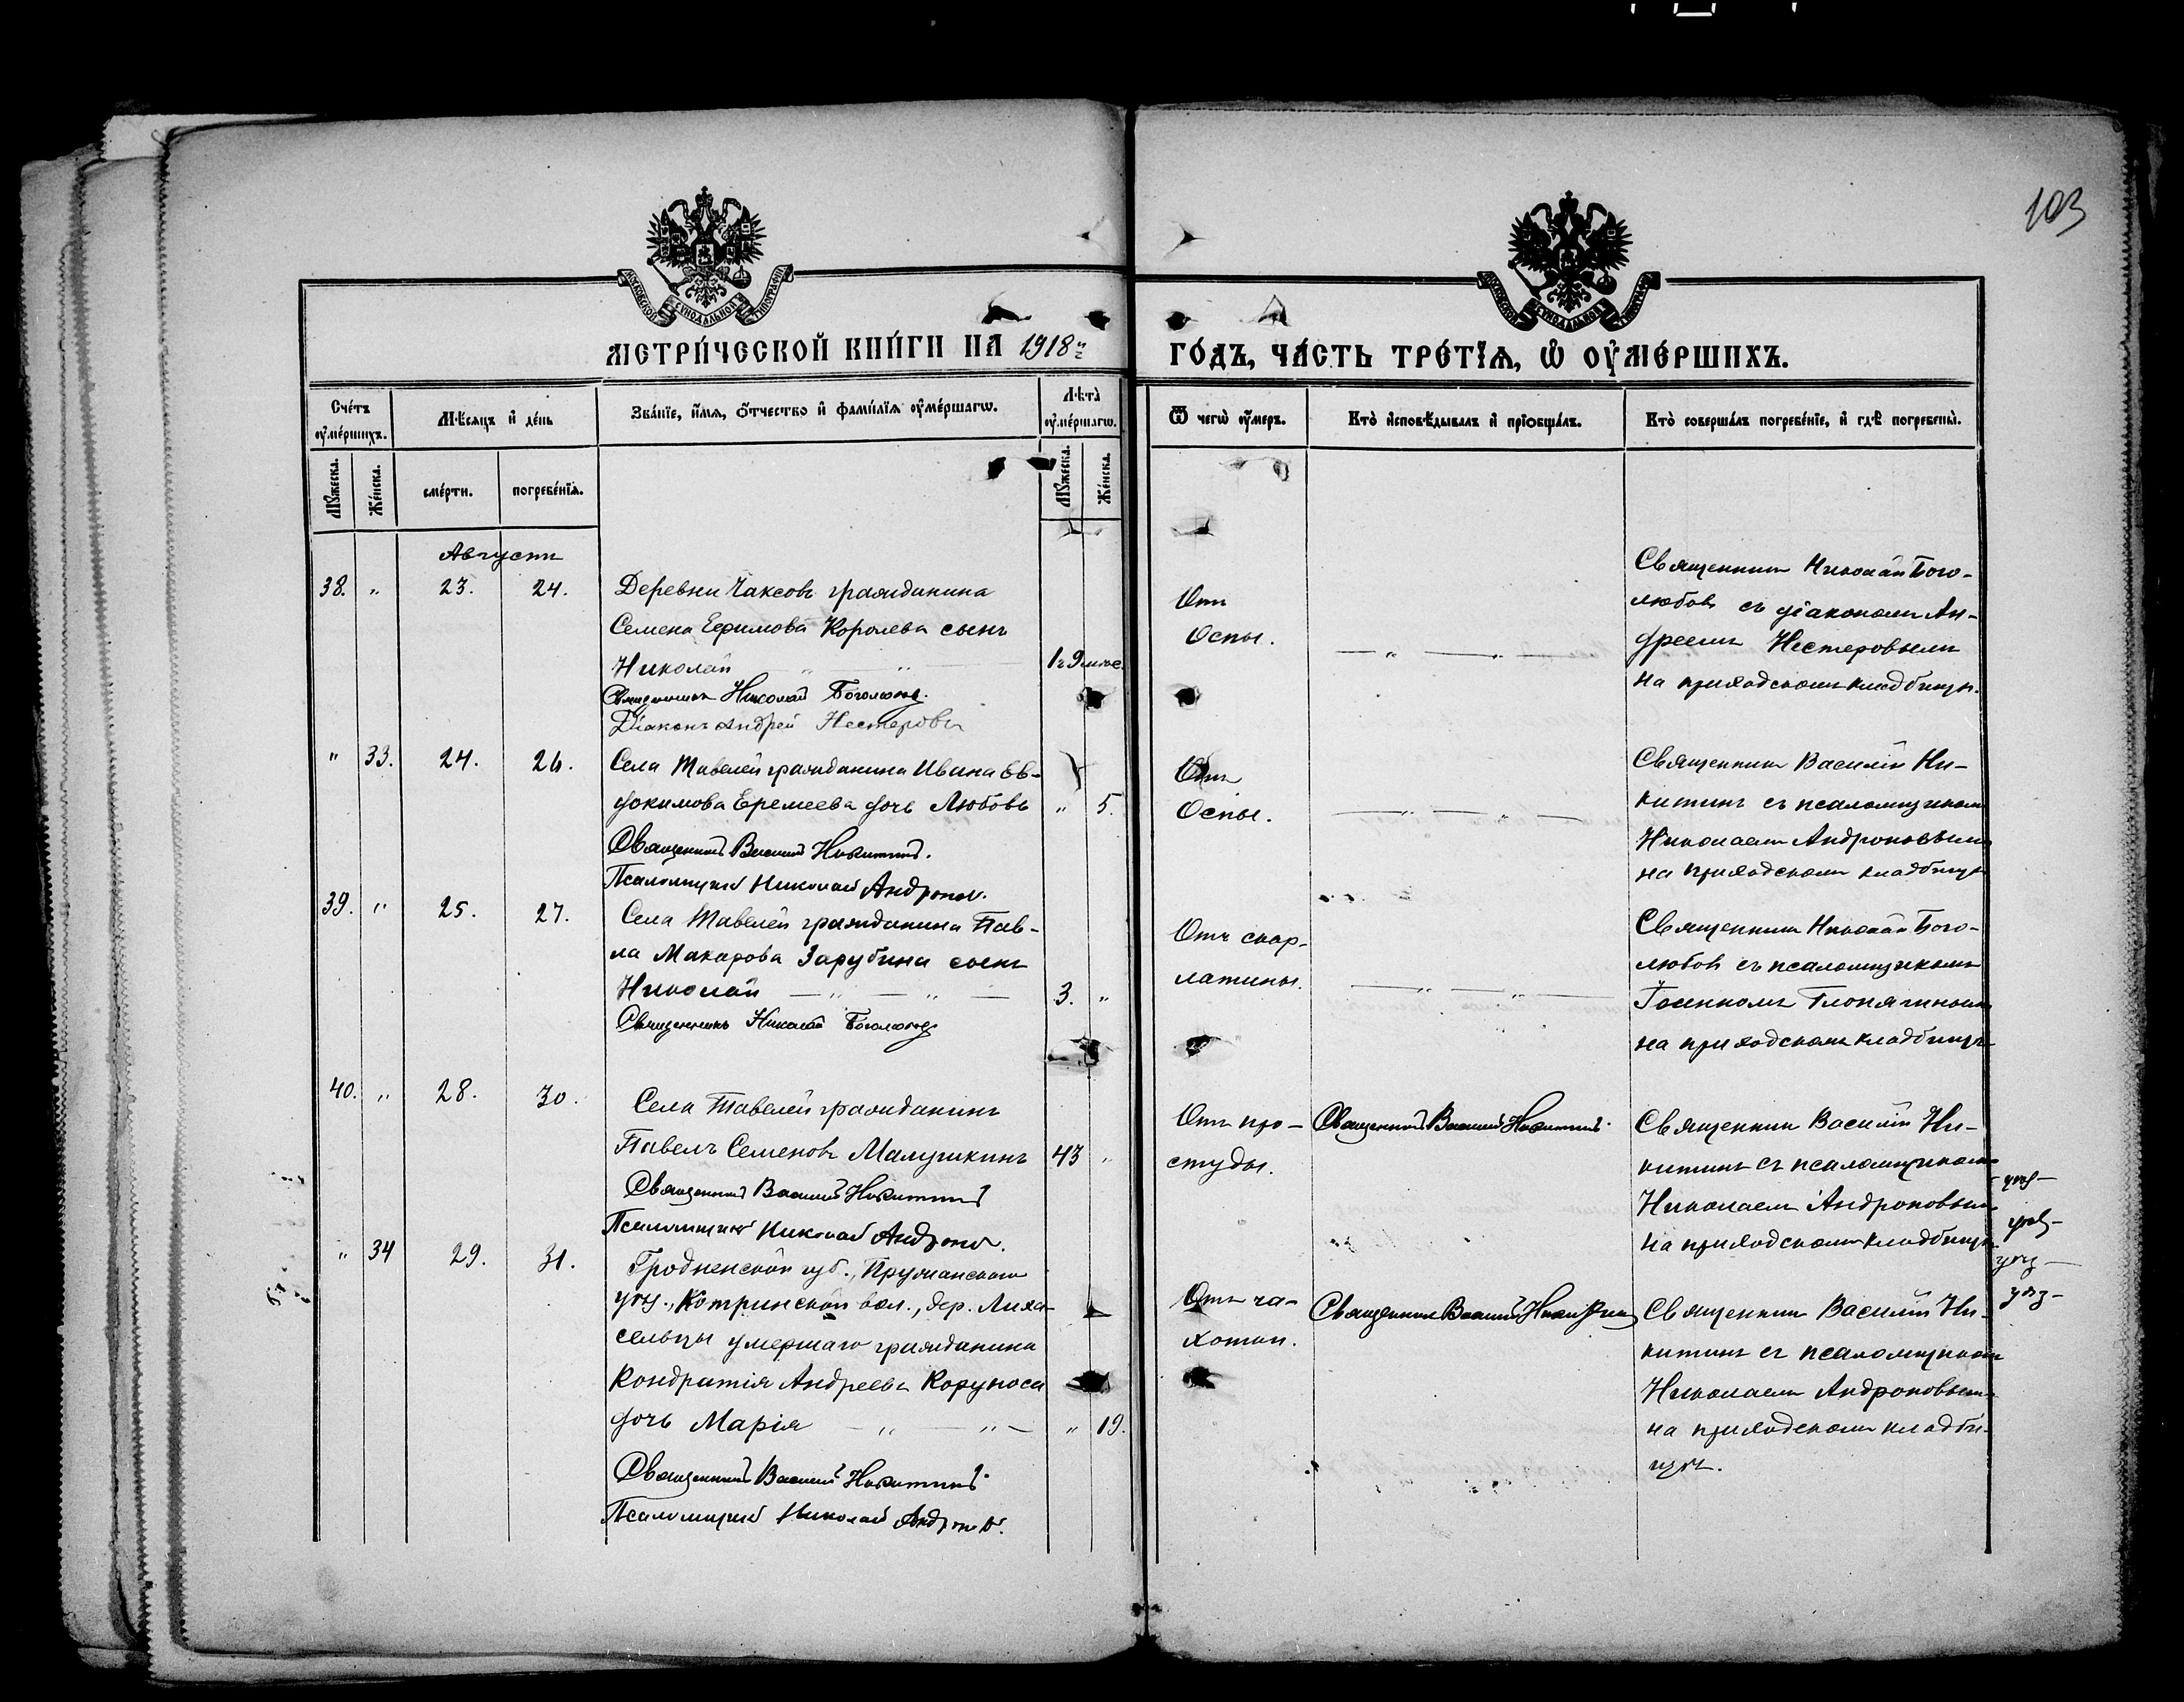 103
МОСКОВСКОЙ СѴНОДАЛЬНОЙ ТИПОГРАФІИ
МОСКОВСКОЙ СѴНОДАЛЬНОЙ ТИПОГРАФІИ
МЕТРИ́ЧЕСКОЙ КНИ́ГИ НА 1918 й
ГО́ДЪ, ЧА́СТЬ ТРЕ́ТЇѦ, Ѡ҆ ОУ҆МЕ́РШИХЪ.
Сче́тъ оу҆ме́ршихъ.
Мѣ́сяцъ и҆ де́нь
Зва́нїе, и҆́мѧ, ѻ҆́тчество и҆ фами́лїѧ оу҆ме́ршагѡ.
Лѣ́та̀ оу҆ме́ршагѡ.
Ѿ чегѡ̀ оу҆́меръ.
Кто̀ и҆сповѣ́дывалъ и҆ прїѡбща́лъ.
Кто̀ соверша́лъ погребе́нїе, и҆ гдѣ̀ погребены̀.
Мꙋ́жеска. Же́нска. сме́рти. погребе́нїѧ. Мꙋ́жеска. Же́нска.
Августъ
38. " 23. 24.
Деревни Чаксовъ гражданина
Семена Ефимова Королева сынъ
Николай
Священникъ Николай Боголюбов.
Діаконъ Андрей Нестеровъ
1 г 9 мѣс.
Отъ
Оспы.
Священникъ Николай Бого-
любовъ съ діакономъ Ан-
дреемъ Нестеровымъ
на приходскомъ кладбищѣ.
" 33. 24. 26.
Села Тавелей гражданина Ивана Ев-
докимова Еремеева дочь Любовь
Священникъ Василій Никитинъ.
Псаломщикъ Николай Андронов.
" 5.
Отъ
Оспы.
Священникъ Василій Ни-
китинъ съ псаломщикомъ
Николаемъ Андроновымъ
на приходскомъ кладбищѣ
39. " 25. 27.
Села Тавелей гражданина Пав-
ла Макарова Зарубина сынъ
Николай
Священникъ Николай Боголюбов
3. "
Отъ скар-
латины.
Священникъ Николай Бого-
любовъ съ псаломщикомъ
на приходскомъ кладбищѣ
40. " 28. 30.
Села Тавелей гражданинъ
Павелъ Семеновъ Малушкинъ
Священникъ Василій Никитинъ
Псаломщикъ Николай Андронов.
43 "
Отъ про-
студы.
Священникъ Василій Никитинъ.
Священникъ Василій Ни-
китинъ съ псаломщикомъ
Николаемъ Андроновымъ
на приходскомъ кладбищѣ
" 34 29. 31.
Гродненской губ., Пружанскаго
уѣз., Котринской вол., дер. Лиха-
сельцы умершаго гражданина
Кондратія Андреева Корупоса
дочь Марія
Священникъ Василій Никитинъ.
Псаломщикъ Николай Андронов.
" 19.
Отъ ча-
хотки.
Священникъ Василій Никитинъ
Священникъ Василій Ни-
китинъ съ псаломщикомъ
Николаемъ Андроновымъ
на приходскомъ кладби-
щѣ.